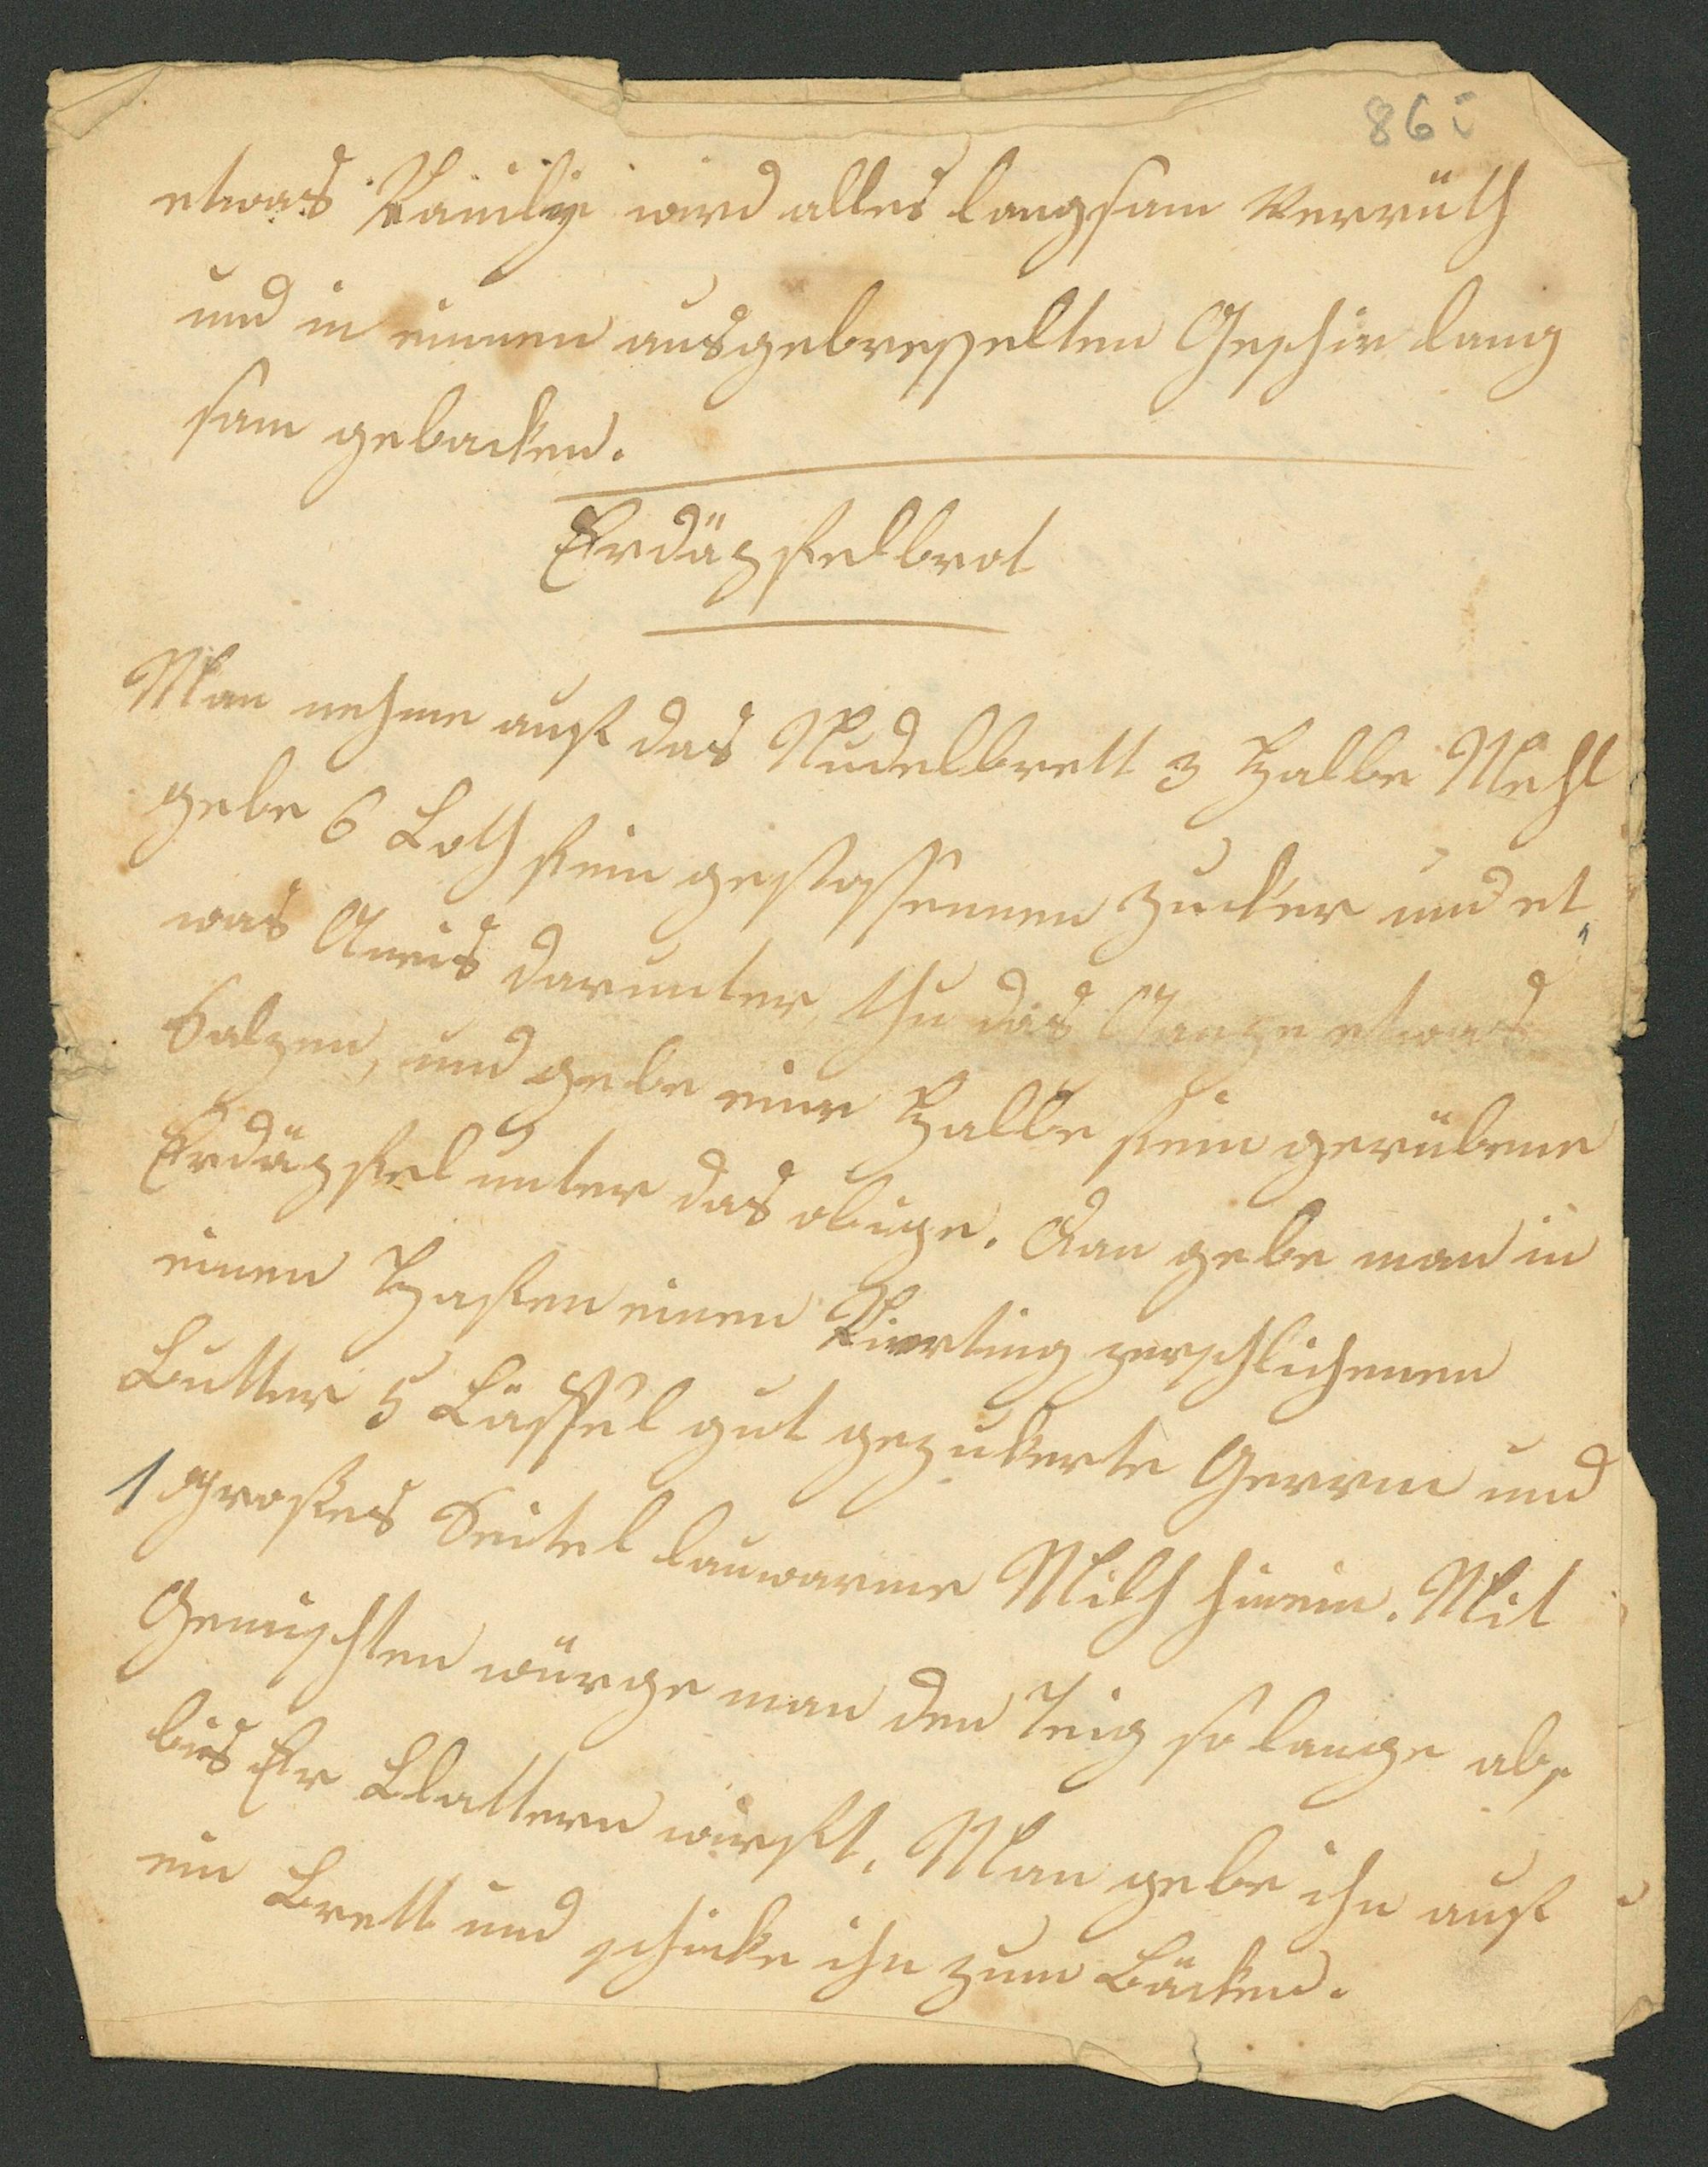 86
etwas Vanily wird alles langsam verrüth
und in einnen ausgebresselten Geschir lang
sam gebacken.
Erdäpfelbrot
Man nehme auf das Nudelbrett 3 Halbe Mehl
gebe 6 Loth fein gestossennen Zucker und et„
was Aneis darunter, thu das Ganze etwas
Salzen, und gebe eine Halbe fein gerübene
Erdäpfel unter das obige. Dan gebe man in
einen Hafen einen Vierting zerschlichenen
Butter 5 Läffel gut gezukerte Gerrm und
1 großes Seitel lauwarme Milch hinein. Mit
Gemischten würge man den Teig so lange ab,
bis Er Blattern wirft. Man gebe ihn auf
ein Brett und schicke ihn zum Bäcken.